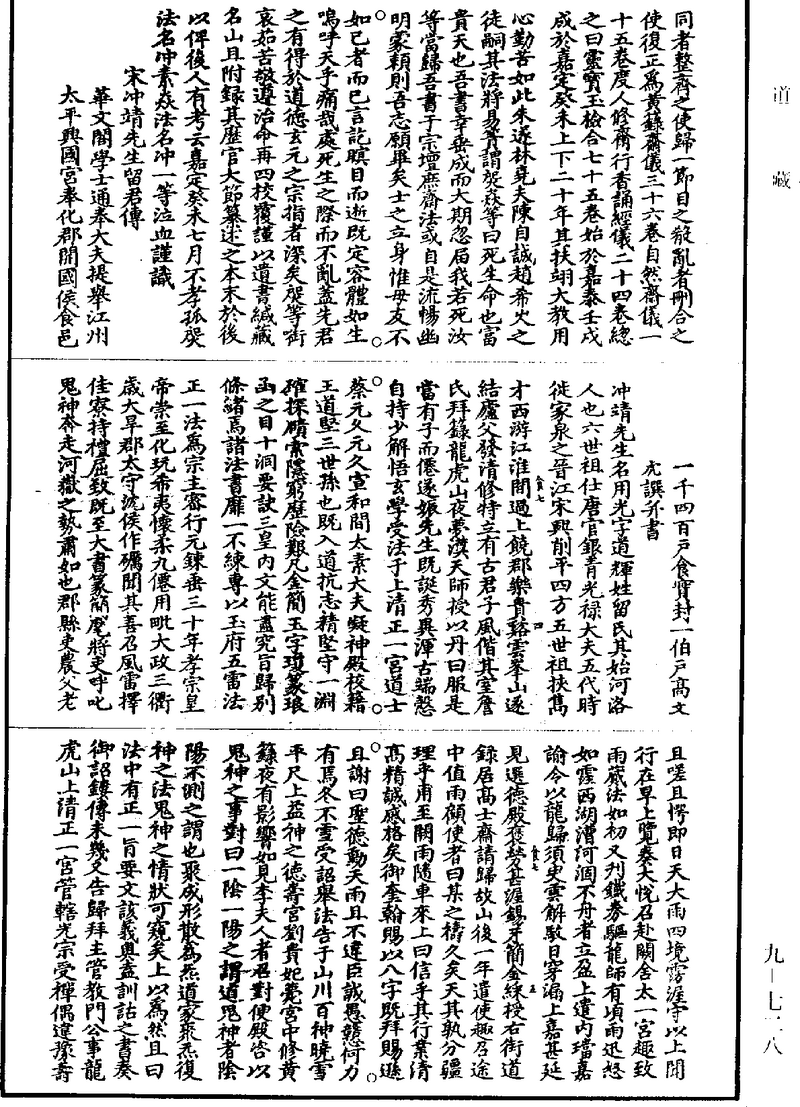 同者整齊之使歸一節目之殽亂者刪合之
使復正爲黃籙齋儀三十六卷自然齋儀一
十五卷度人修齋行香誦經儀二十四卷總
之曰靈寶玉檢合七十五卷始於嘉泰壬戌
成於嘉定癸未上下二十年其扶翊大教用
心勤苦如此朱遂林堯夫陳自誠趙希火之
徒嗣其法將易簀謂曰死生命也富
貴天也吾書幸垂成而大期忽屆我若死汝
等當歸吾書于宗壇庶齋法或自是流暢幽
明蒙賴則吾志願畢矣士之立身惟毋友不
如己者而已言訖瞑目而逝既定容體如生
嗚呼天乎痛哉處死生之際而不亂蓋先君
之有得於道德玄元之宗指者深矣等銜
哀茹苦敬遵治命再四校覆謹以遺書緘藏
名山且附錄其歷官大節纂述之本末於後
以俾後人有考云嘉定癸未七月不孝孤
法名冲素法名冲一等泣血謹識
宋冲靖先生留君傳
華文閣學士通奉大夫提舉江州
太平興國宮奉化郡開國侯食邑
一千四百戶食實封一伯戶高文
虎譔幷書
冲靖先生名用光字道輝姓留氏其始河洛
人也六世祖仕唐官銀青光祿大夫五代時
徙家泉之晉江宋興削平四方五世祖挾雋
才西游江淮間過上饒郡樂貴谿雲峯山遂
結廬父發清修特立有古君子風偕其室詹
氏拜籙龍虎山夜夢漢天師授以丹曰服是
當有子而僊遂娠先生既誕秀異渾古端愨
自持少解悟玄學受法于上清正一宮道士
蔡元久元久宣和間太素大夫凝神殿校籍
王道堅三世孫也既入道抗志精堅守一淵
確探賾索隱窮歷險艱凡金簡玉字瓊篆琅
函之目十洞要訣三皇內文能盡究旨歸別
條緒焉諸法書靡一不練專以玉府五雷法
正一法爲宗主審行元錬垂三十年孝宗皇
帝崇至化玩希夷懷柔九僊用毗大政三衢
歲大旱郡太守沈侯作礪聞其善召風雷擇
佳寮持禮屈致既至大書篆簡麾將吏呼叱
鬼神奔走河嶽之勢肅如也郡縣吏農父老
且嗟且愕即日天大雨四境霧涯守以上聞
行在旱上覽奏大悅召赴闕舍太一宮趣致
雨厥法如初又刋鐵券驅龍師有頃雨迅怒
如霪西湖漕河涸不舟者立盆上遣內璫嘉
諭令以龍歸須臾雲解暾日穿漏上嘉甚延
見選德殿褒勞甚渥錫牙簡金綵授右街道
錄居高士齋請歸故山後一年遣使趣召途
中值雨顧使者曰某之禱久矣天其孰分疆
理乎甫至闕雨隨車來上曰信乎其行業清
高精誠感格矣御奎翰賜以八字既拜賜遜
且謝曰聖德動天雨且不違臣誠愚戇何力
有焉冬不雪受詔舉法告于山川百神曉雪
平尺上益神之德壽宮劉貴妃薨宮中修黃
籙夜有影響如見李夫人者召對便殿咨以
鬼神之事對曰一陰一陽之謂道鬼神者陰
陽不測之謂也聚成形散爲炁道家聚炁復
神之法鬼神之情狀可窺矣上以爲然且曰
法中有正一旨要文該義奧盍訓詁之書奏
御詔鏤傳未幾又告歸拜主管教門公事龍
虎山上清正一宮管轄光宗受禪偶違豫壽
道藏
九—七二八